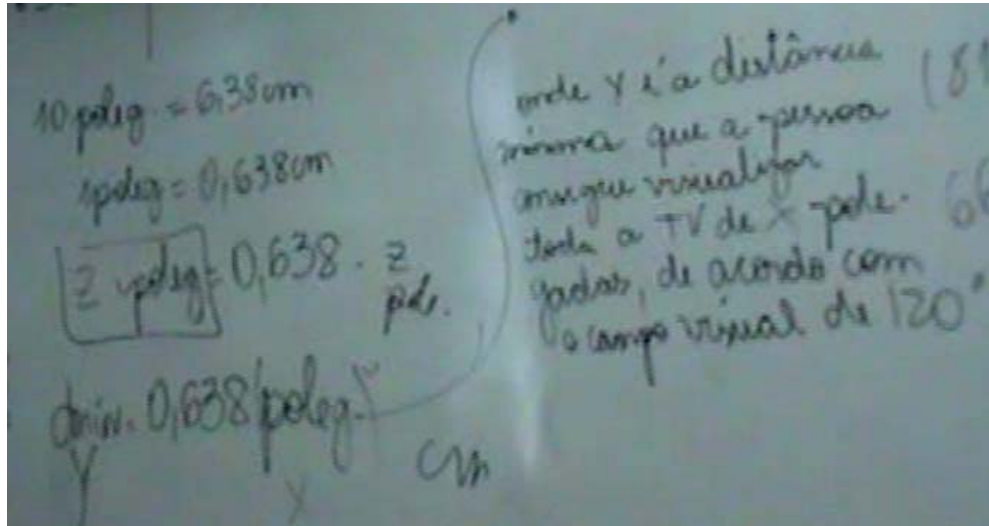 10 poleg. = 6,38 cm
1 poleg = 0,638 cm
Z poleg = 0,638 . Z
pole.
dmin. 0,638 (poleg.)
Y
X
cm
onde Y é a distância
mínima que a pessoa
consegue visualizar
toda a TV de X pole-
gadas, de acordo com
o campo visual de 120°